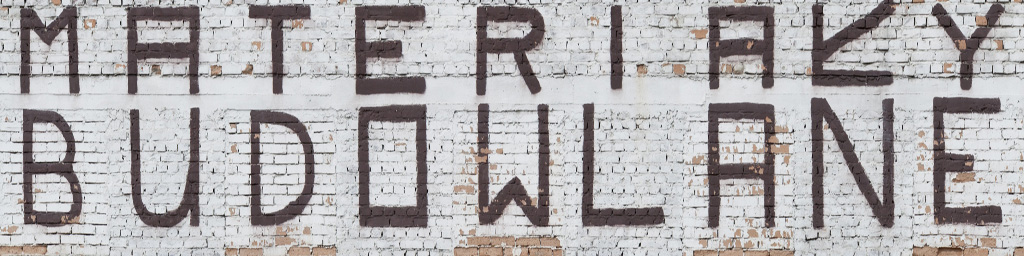 MATERIAŁY
BUDOWLANE